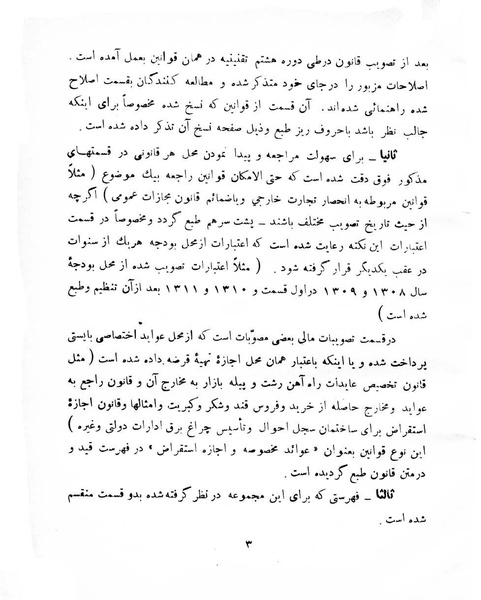 بعد از تصویب قانون درطی دوره هشتم تقنینیه در همان قوانین بعمل آمده است .
اصلاحات مزبور را درجای خود متذکر شده و مطالعه کنندگان بقسمت اصلاح
شده راهنمائی شده‌اند. آن قسمت از قوانین که نسخ شده مخصوصاً برای اینکه
جالب نظر باشد باحروف ریز طبع وذیل صفحه نسخ آن تذکر داده شده است .
ثانیا ـ برای سهولت مراجعه و پیدا نمودن محل هر قانونی در قسمتهای
مذکور فوق دقت شده است که حتی الامکان قوانین راجعه بیك موضوع ( مثلاً
قوانین مربوطه به انحصار تجارت خارجی وباضمائم قانون مجازات عمومی ) اگرچه
از حیث تاریخ تصویب مختلف باشند ـ پشت سرهم طبع گردد ومخصوصاً در قسمت
اعتبارات این نکته رعایت شده است که اعتبارات ازمحل بودجه هریك از سنوات
در عقب یکدیگر قرار گرفته شود . ( مثلاً اعتبارات تصویب شده از محل بودجۀ
سال ۱۳۰۸ و ۱۳۰۹ دراول قسمت و ۱۳۱۰ و ۱۳۱۱ بعد ازآن تنظیم وطبع
شده است )
درقسمت تصویبات مالی بعضی مصوّبات است که ازمحل عواید اختصاصی بایستی
پرداخت شده و یا اینکه باعتبار همان محل اجازۀ تهیۀ قرضه داده شده است ( مثل
قانون تخصیص عایدات راه آهن رشت و پیله بازار به مخارج آن و قانون راجع به
عواید ومخارج حاصله از خرید وفروس قند وشکر وکبریت وامثالها وقانون اجازۀ
استقراض برای ساختمان سجل احوال وتأسیس چراغ برق ادارات دولتی وغیره )
این نوع قوانین بعنوان « عوائد مخصوصه و اجازه استقراض » در فهرست قید و
درمتن قانون طبع گردیده است .
ثالثا ـ فهرستی که برای این مجموعه در نظر گرفته‌شده بدو قسمت منقسم
شده است .
۳